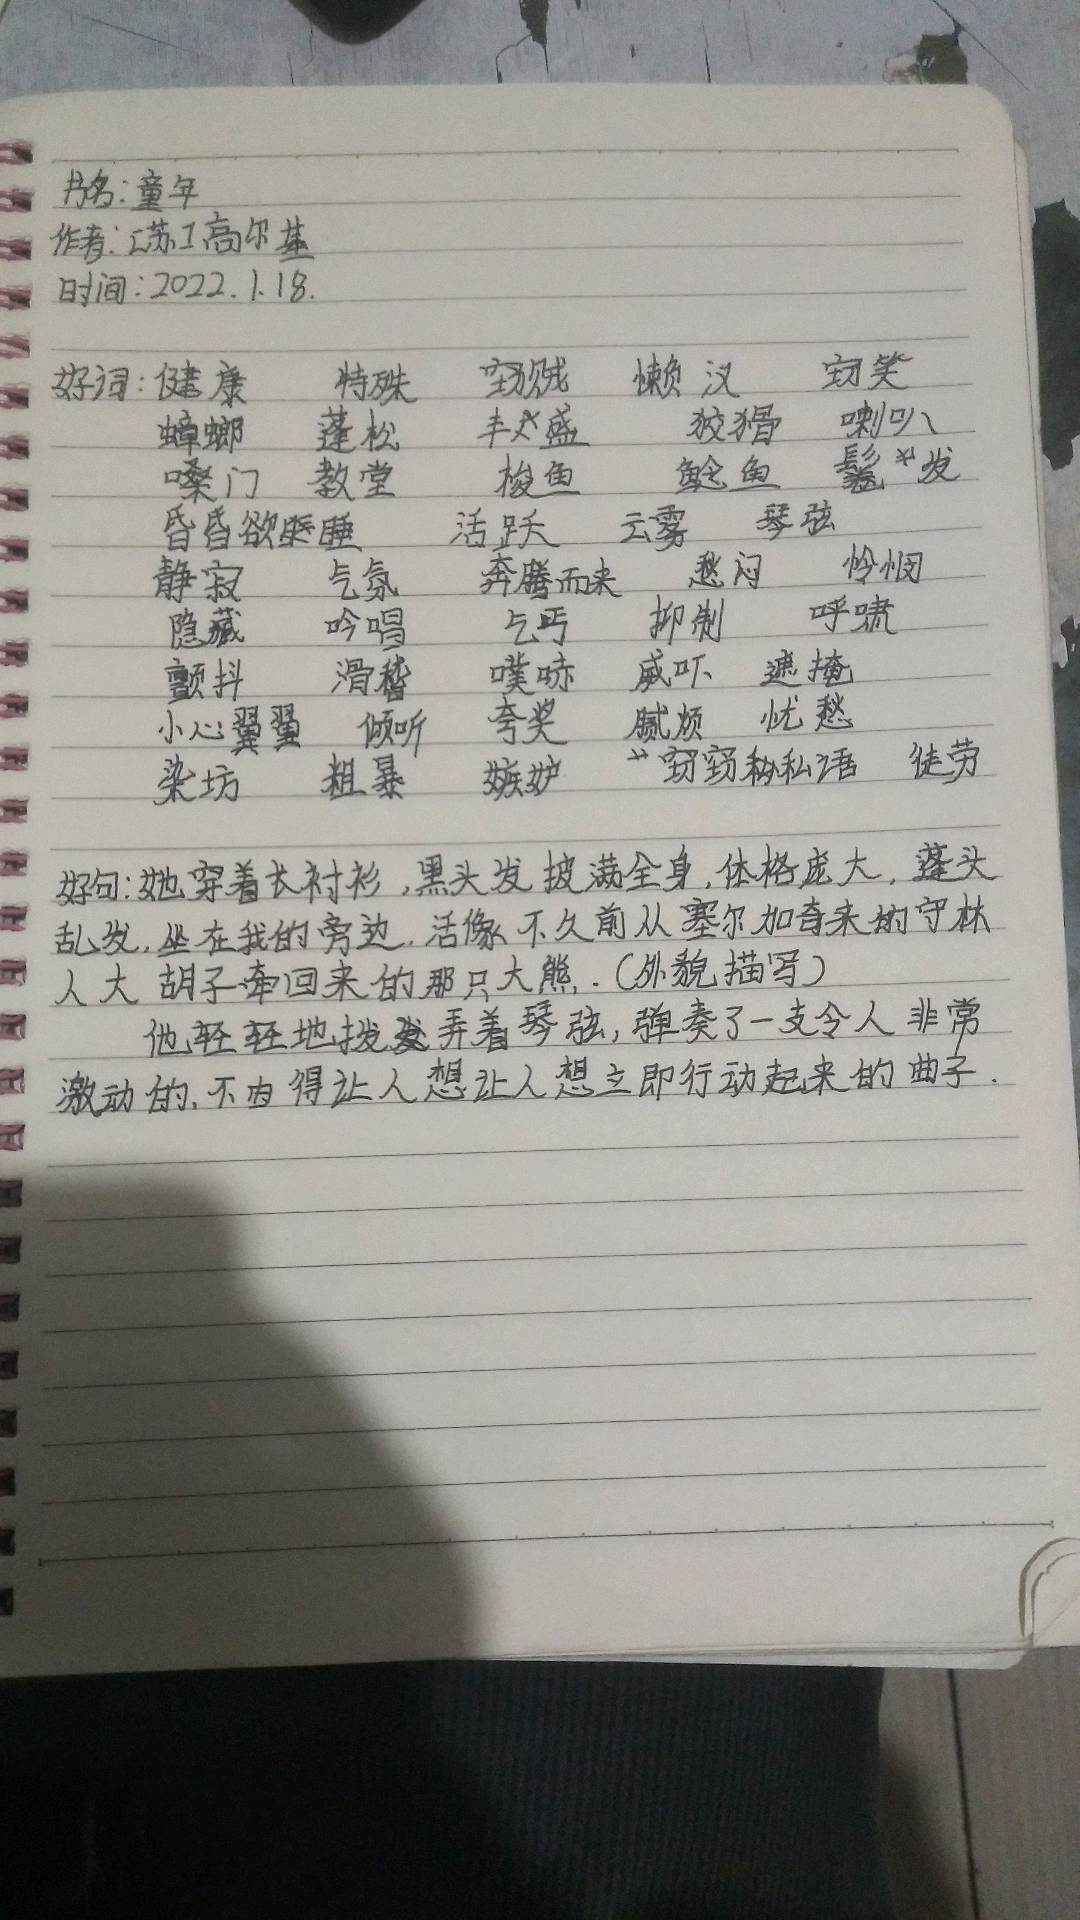 书名:童年
作者:[苏]高尔基
时间:2022.1.18.
好词:健康 特殊 窃贼 懒汉 窃笑
蟑螂 蓬松 丰盛 狡猾 喇叭
嗓门 教堂 梭鱼 鲶鱼 鬈发
昏昏欲睡 活跃 云雾 琴弦
静寂 气氛 奔腾而来 愁闷 怜悯
隐藏 吟唱 乞丐 抑制 呼啸
颤抖 滑稽 噗哧 威吓 遮掩
小心翼翼 倾听 夸奖 腻烦 忧愁
染坊 粗暴 嫉妒 窃窃私语 徒劳
好句:她穿着长衬衫,黑头发披满全身,体格庞大,蓬头
乱发,坐在我的旁边,活像不久前从塞尔加奇来的守林
人大胡子牵回来的那只大熊.(外貌描写)
他轻轻地拨弄着琴弦,弹奏了一支令人非常
激动的,不由得让人想让人想立即行动起来的曲子.